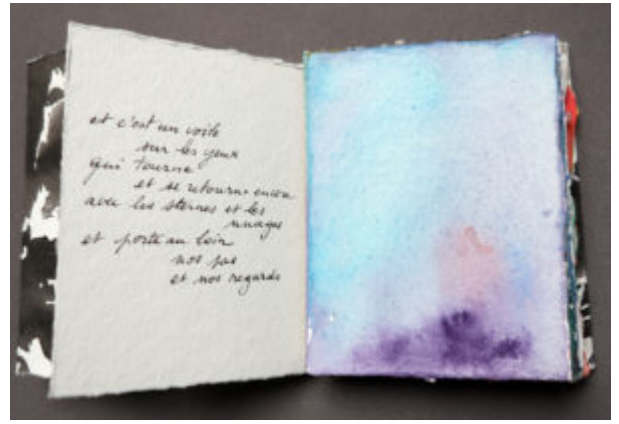 et c'est un voile
sur les yeux
qui tourne
et se retourne encore
avec les sternes et les
nuages
et porte au loin
nos pas
et nos regards